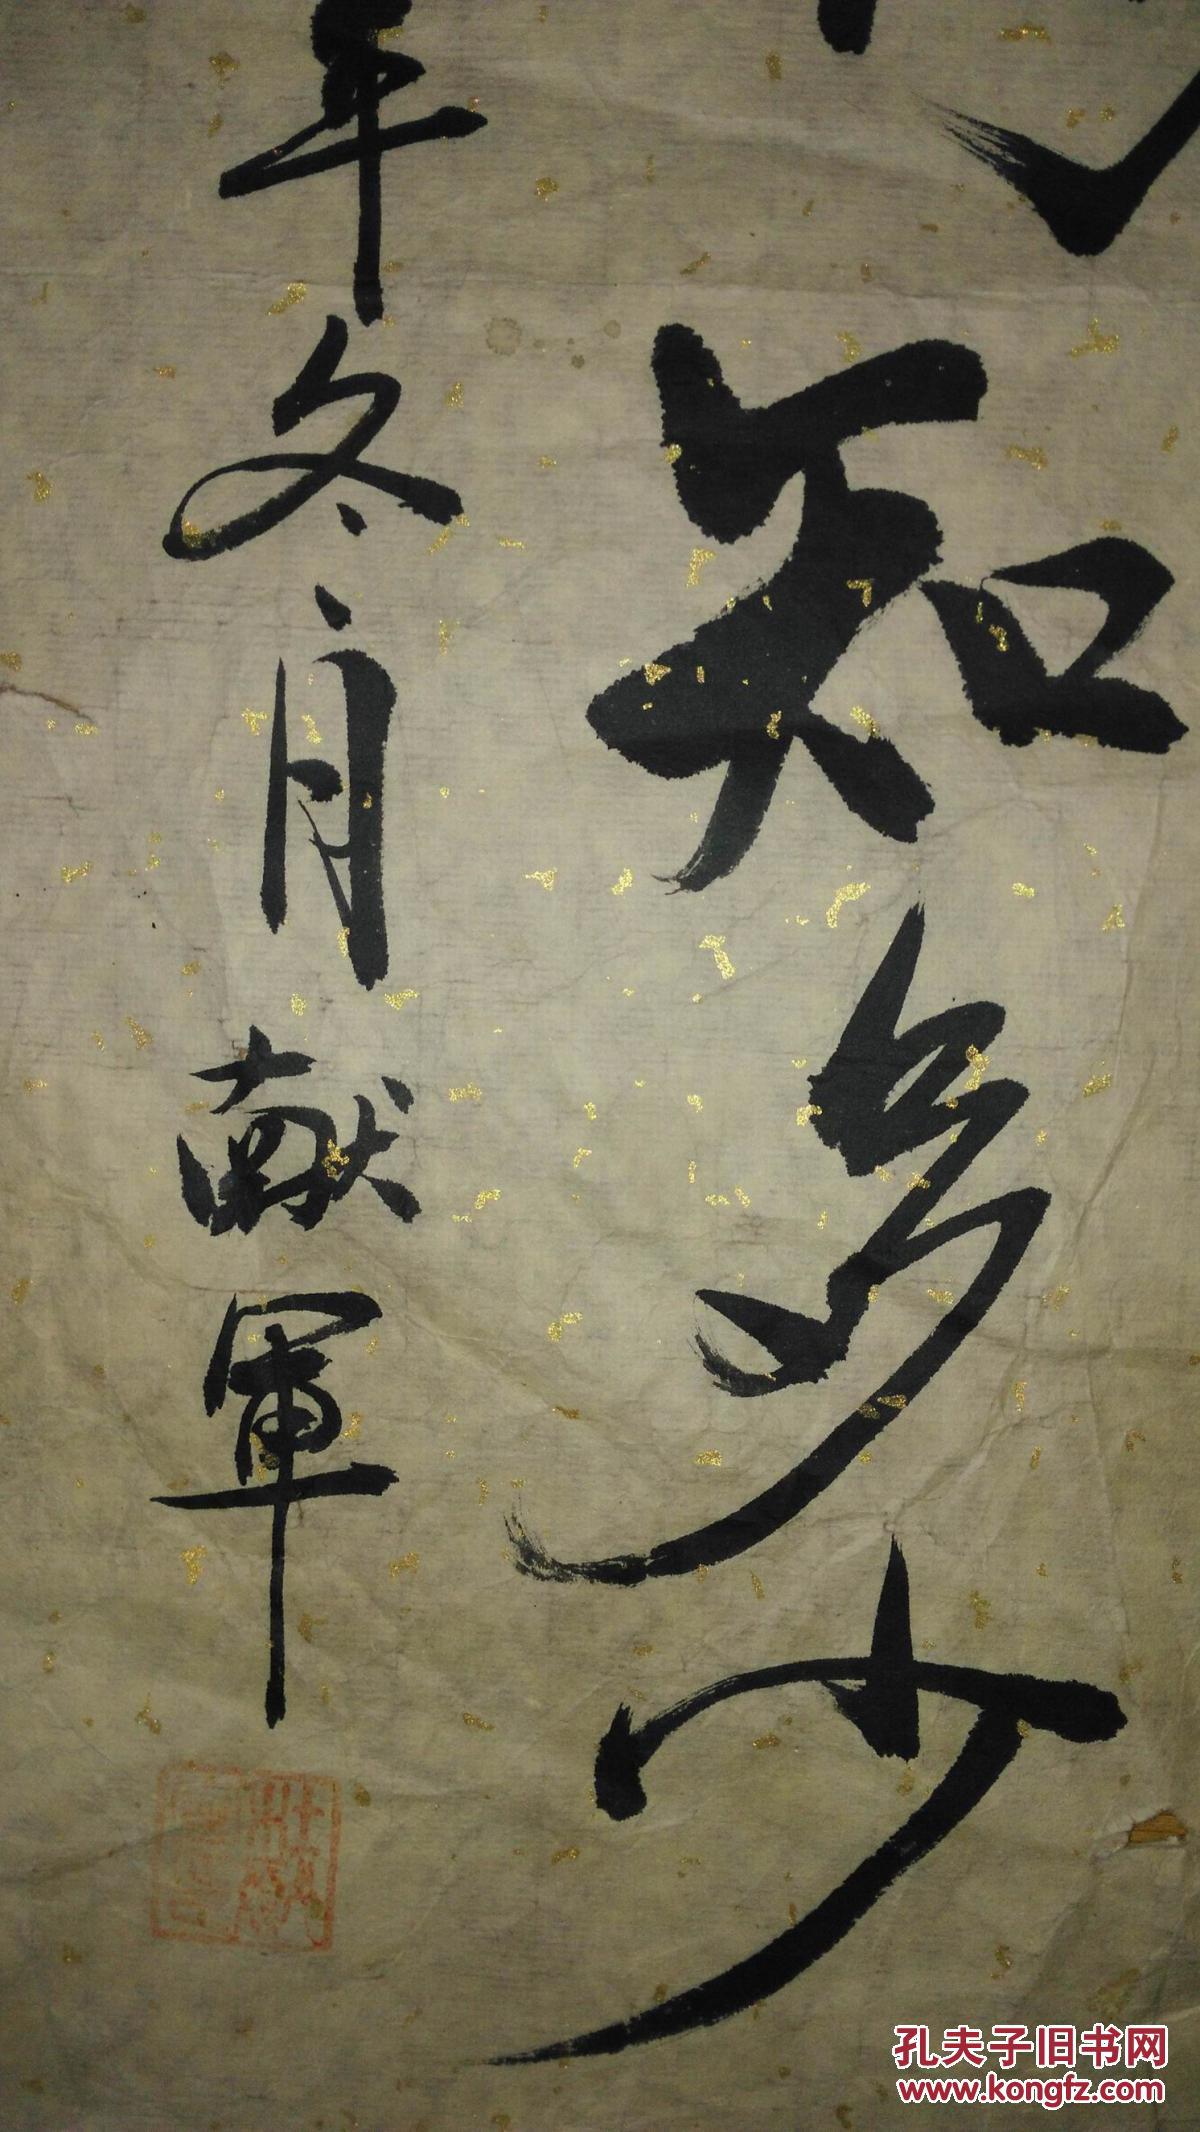 知多少
年冬月献軍
孔夫子旧书网
www.kongfz.com